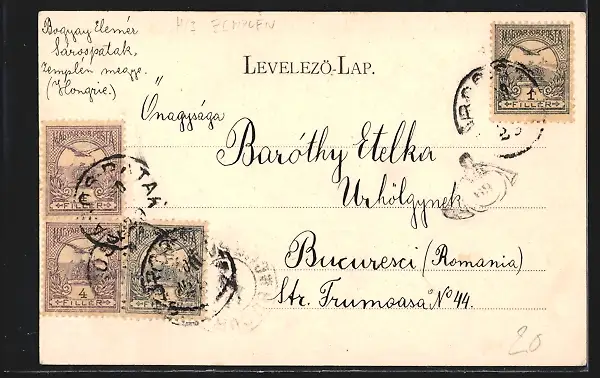 No ZEMPLÉN
Bogyay Elemér
Sárospatak,
Zemplén megye.
(Hongrie.)
LEVELEZŐ-LAP.
MAGYAR KIR. POSTA
1
FILLÉR
Őnagysága
Baróthy Etelka
Urhölgynek
Bucuresci (Romania)
Str. Frumoasă No 44.
MAGYAR KIR. POSTA
FILLÉR
MAGYAR KIR. POSTA
4
FILLÉR
MAGYAR KIR. POSTA
FILLÉR
SÁROSPATAK
20